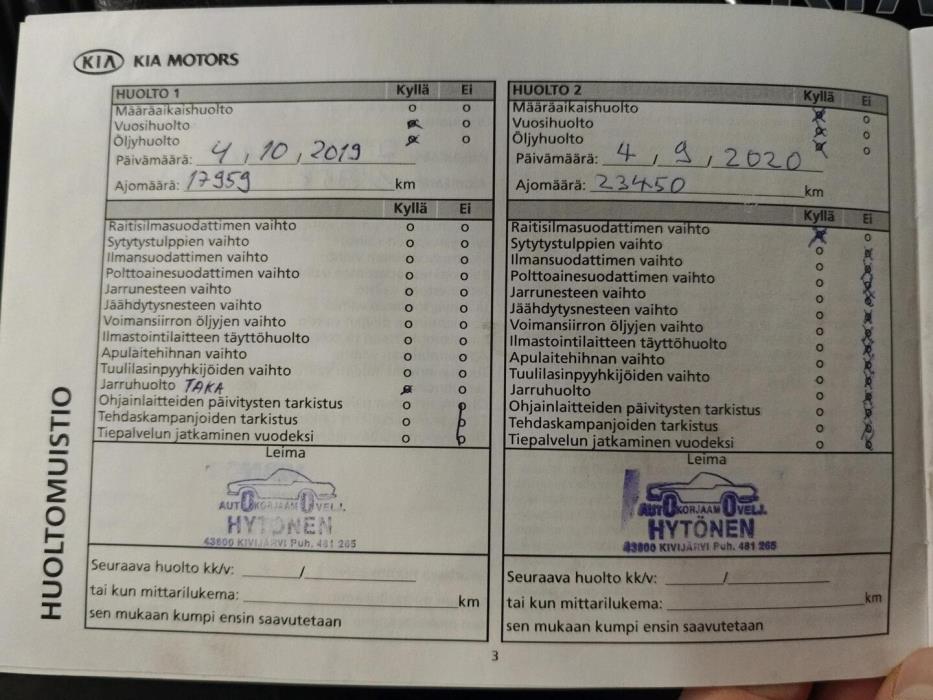 KIA KIA MOTORS
HUOLTOMUISTIO
HUOLTO 1 Kyllä Ei
Määräaikaishuolto
Vuosihuolto
Öljyhuolto
Päivämäärä: 4, 10, 2019
Ajomäärä: 17959 km
Kyllä Ei
Raitisilmasuodattimen vaihto
Sytytystulppien vaihto
Ilmansuodattimen vaihto
Polttoainesuodattimen vaihto
Jarrunesteen vaihto
Jäähdytysnesteen vaihto
Voimansiirron öljyjen vaihto
Ilmastointilaitteen täyttöhuolto
Apulaitehihnan vaihto
Tuulilasinpyyhkijöiden vaihto
Jarruhuolto TAKA
Ohjainlaitteiden päivitysten tarkistus
Tehdaskampanjoiden tarkistus
Tiepalvelun jatkaminen vuodeksi
Leima
AUTOKORJAAMO VELJ.
HYTÖNEN
43800 KIVIJÄRVI Puh. 481 265
Seuraava huolto kk/v: /
tai kun mittarilukema: km
sen mukaan kumpi ensin saavutetaan
HUOLTO 2 Kyllä Ei
Määräaikaishuolto
Vuosihuolto
Öljyhuolto
Päivämäärä: 4, 9, 2020
Ajomäärä: 23450 km
Kyllä Ei
Raitisilmasuodattimen vaihto
Sytytystulppien vaihto
Ilmansuodattimen vaihto
Polttoainesuodattimen vaihto
Jarrunesteen vaihto
Jäähdytysnesteen vaihto
Voimansiirron öljyjen vaihto
Ilmastointilaitteen täyttöhuolto
Apulaitehihnan vaihto
Tuulilasinpyyhkijöiden vaihto
Jarruhuolto
Ohjainlaitteiden päivitysten tarkistus
Tehdaskampanjoiden tarkistus
Tiepalvelun jatkaminen vuodeksi
Leima
AUTOKORJAAMO VELJ.
HYTÖNEN
43800 KIVIJÄRVI Puh. 481 265
Seuraava huolto kk/v: /
tai kun mittarilukema: km
sen mukaan kumpi ensin saavutetaan
3